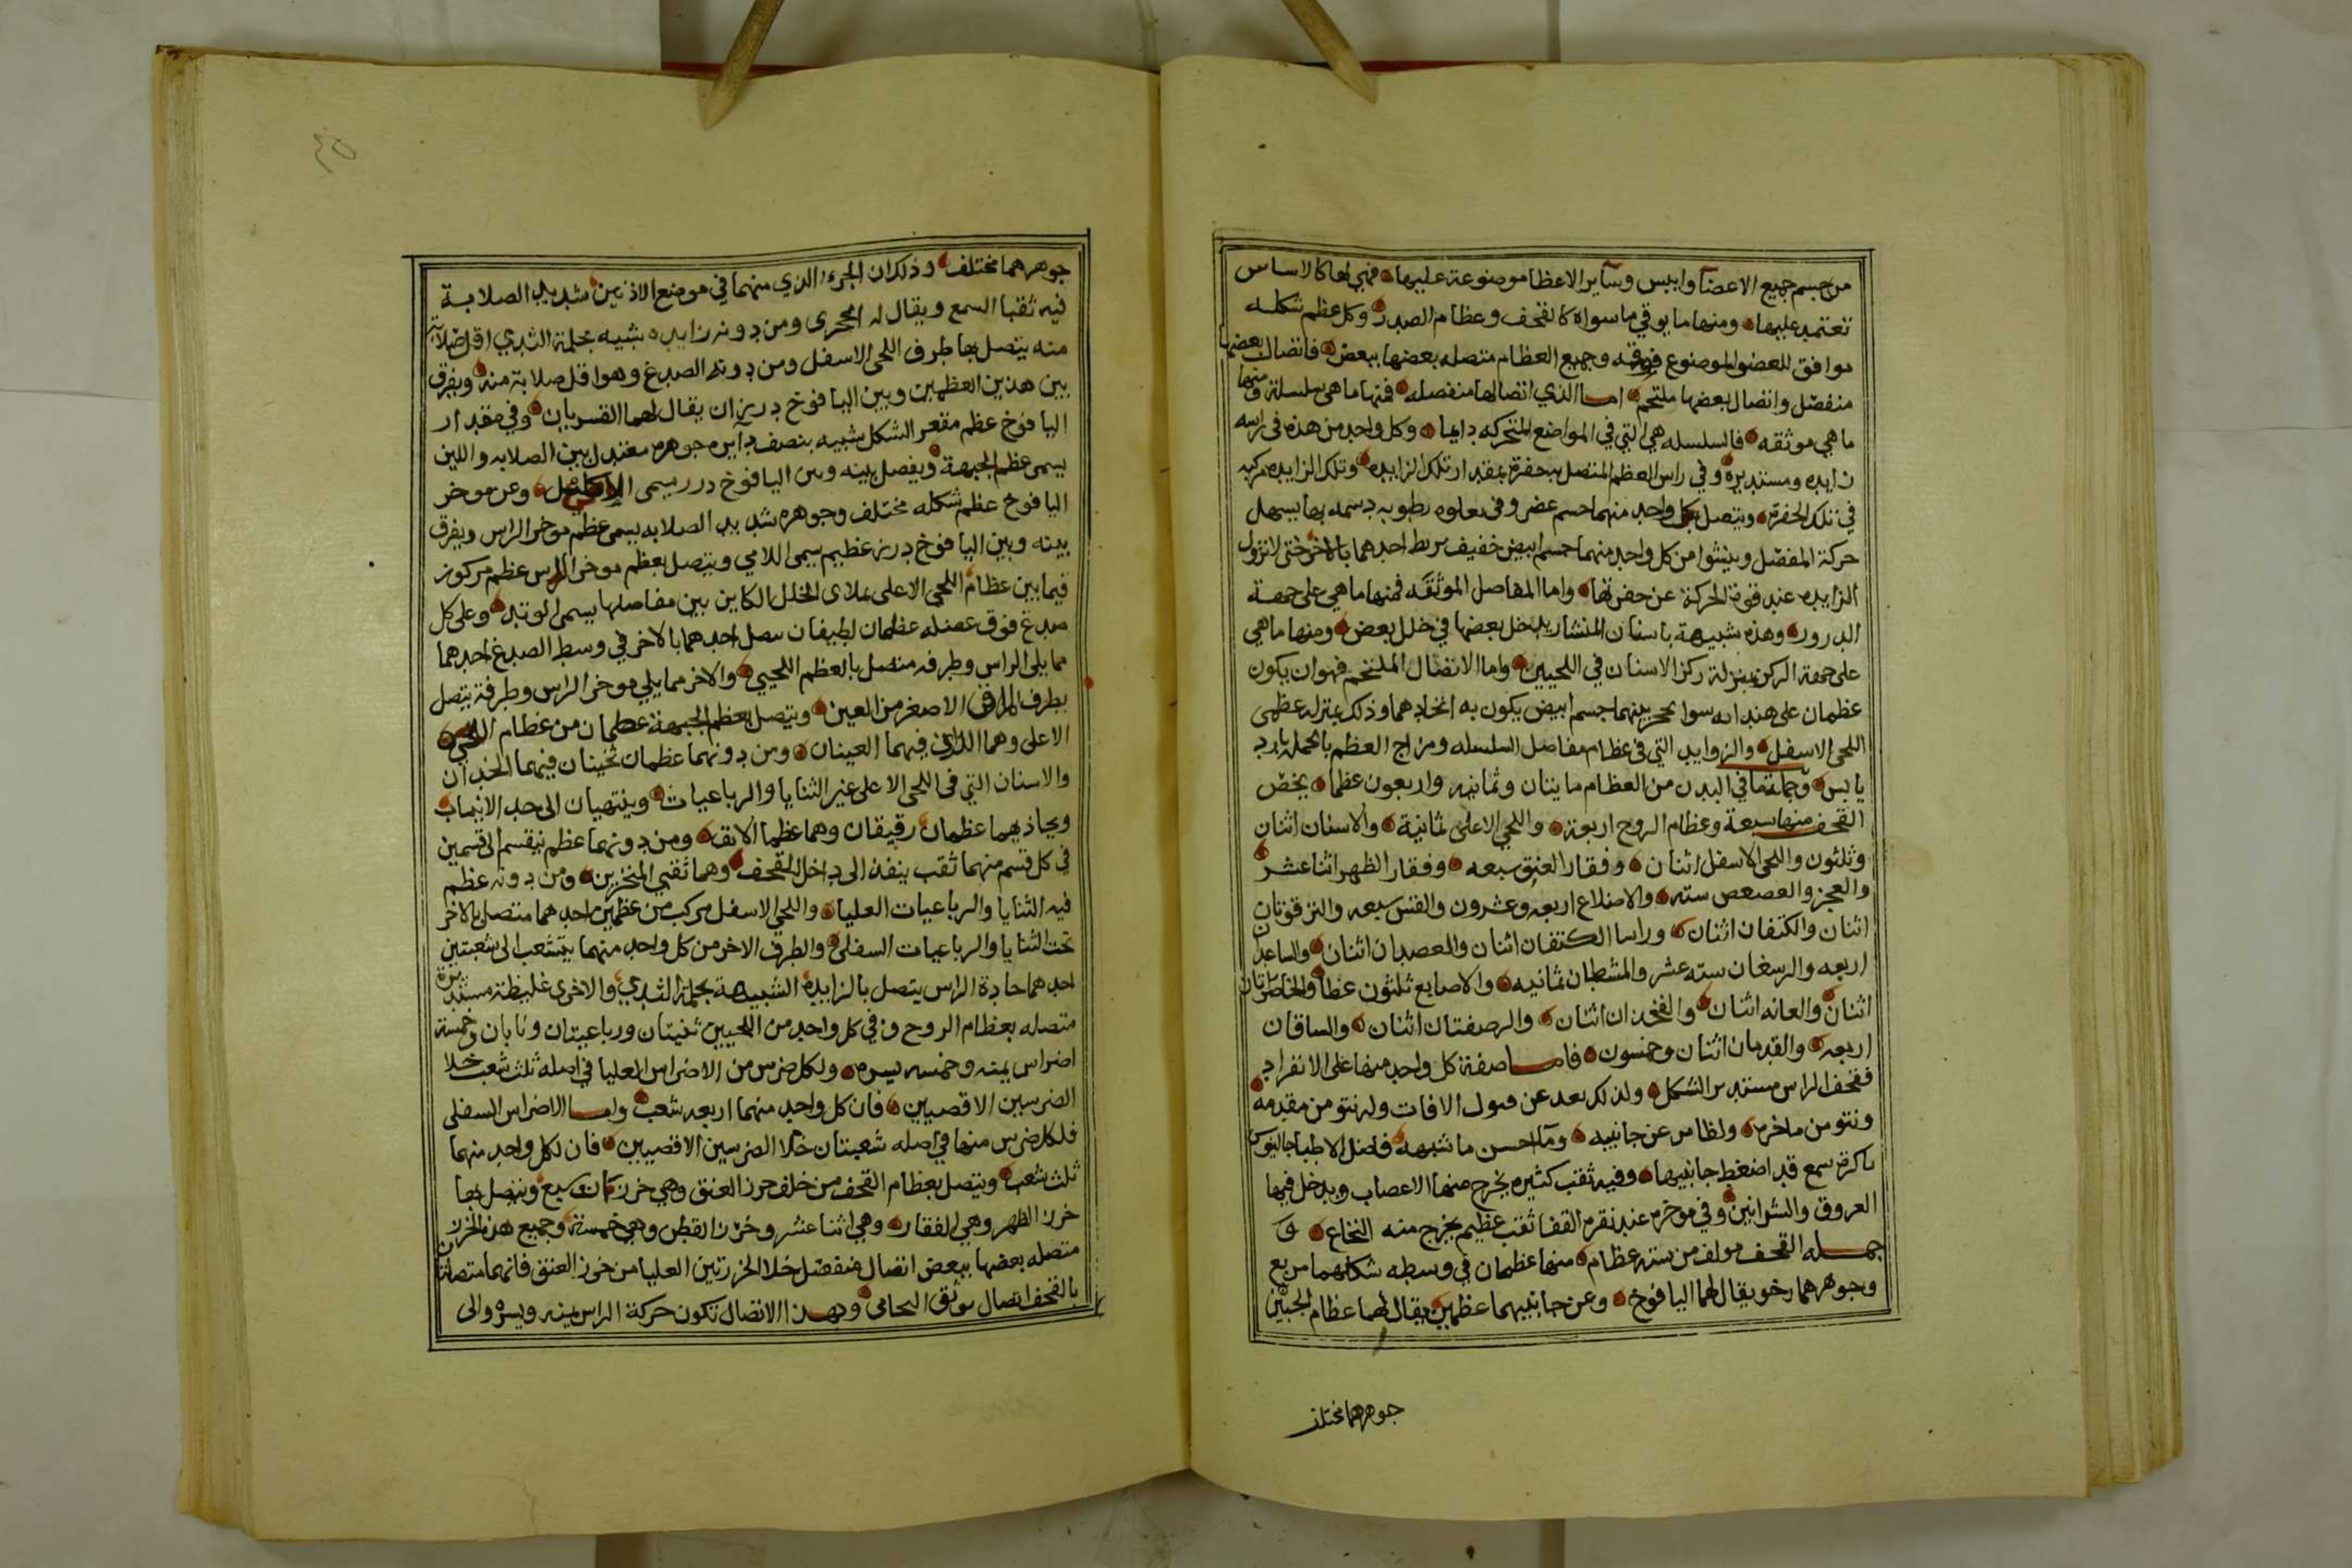 من جسم جميع الاعضآ وايبس وسآير الاعظا موضوعة عليها فهي لها كالاساس
تعتمد عليها ومنها ما يوقي ما سواه كالقحف وعظام الصدر وكل عظم شكله
موافق للعضو الموضوع فوقه وجميع العظام متصله بعضها ببعض فاتصال بعضها
منفصل واتصال بعضها ملتحم اما الذي اتصالها منفصله فمنها ما هي سلسلة ومنها
ما هي موثقه فالسلسله هي التي في المواضع المتحركه دايما وكل واحد من هذه في راسه
زايده ومستديرة وفي راس العظم المتصل به حفرة بمقدار تلك الزايده وتلك الزايده مركبه
في تلك الحفرة ويتصل بكل واحد منهما جسم غضروفى يعلوه رطوبه دسمه بها يسهل
حركة المفصل وينشوا من كل واحد منهما جسم ابيض خفيف يربط احدهما بالاخر حتى لا تزول
الزايده عند قوة الحركة عن حفرتها واما المفاصل الموثقه فمنها ما هي على جهة
الدروز وهذه شبيهة باسنان المنشار يدخل بعضها في خلل بعض ومنها ما هي
على جهة الركز بمنزلة ركز الاسنان في اللحيين واما الاتصال الملتحم فهو ان يكون
عظمان على هندامه سوا بحجز بينهما جسم ابيض يكون به اتحادهما وذلك بمنزله عظمى
اللحى الاسفل والزوايد التي في عظام مفاصل السلسله ومزاج العظم بالجمله بارد
يابس وجملة ما في البدن من العظام مايتان وثمانيه واربعون عظما يخص
القحف منها سبعة وعظام الزوج اربعة واللحي الاعلى ثمانية والاسنان اثنان
وثلثون واللحى الاسفل اثنان وفقار العنق سبعه وفقار الظهر اثنا عشر
والعجز والعصعص سته والاضلاع اربعه وعشرون والقس سبعه والترقوتان
اثنان والكتفان اثنان وراسا الكتفان اثنان والعضدان اثنان والساعدان
اربعه والرسغان سته عشر والمشطان ثمانيه والاصابع ثلثون عظما والخاصرتان
اثنان والعانه اثنان والفخذان اثنان والرضفتان اثنان والساقان
اربعه والقدمان اثنان وخمسون فاما صفة كل واحد منها على الانفراد
فقحف الراس مستدير الشكل ولذلك بعد عن قبول الافات وله نتو من مقدمه
ونتو من ماخره ولطا من عن جانبيه وما احسن ما شبهه فاضل الاطبا جالينوس
باكرة سمع قد اضغط جانبيها وفيه ثقب كثيره يخرج منها الاعصاب ويدخل فيها
العروق والشرايين وفي موخره عند نقره القفا ثقب عظيم يخرج منه النخاع و
جمله القحف مولف من سته عظام منها عظمان في وسطه شكلهما مربع
وجوهرهما رخو يقال لهما اليافوخ وعن جانبيهما عظمين يقال لهما عظام الجنبين
جوهرهما مختلف
جوهرهما مختلف وذلك ان الجزء الذي منهما في موضع الاذنين شديد الصلابة
فيه ثقبا السمع ويقال له الحجرى ومن دونه زايده شبيه بحلمة الثدي اقل صلابة
منه يتصل بها طرف اللحى الاسفل ومن دونه الصدغ وهو اقل صلابة منه ويفرق
بين هذين العظمين وبين اليافوخ درزان يقال لهما القسريان وفي مقدار
اليافوخ عظم مقعر الشكل شبيه بنصف دايره جوهره معتدل بين الصلابه واللين
يسمى عظم الجبهة ويفصل بينه وبين اليافوخ درز يسمى الاكليل وعن موخر
اليافوخ عظم شكله مختلف وجوهره شديد الصلابه يسمى عظم موخر الراس ويفرق
بينه وبين اليافوخ درز عظيم يسمى اللامي ويتصل بعظم موخر الراس عظم مركوز
فيما بين عظام اللحي الاعلى علاى الخلل الكاين بين مفاصلها يسمى الوتد وعلى كل
صدغ فوق عضله عظمان لطيفان يتصل احدهما بالاخر في وسط الصدغ احدهما
مما يلي الراس وطرفه متصل بالعظم اللحيي والاخر مما يلي موخر الراس وطرفه يتصل
بطرف الماق الاصغر من العين ويتصل بعظم الجبهة عظمان من عظام اللحي
الاعلى وهما اللذان فيهما العينان ومن دونهما عظمان ثخينان فيهما الخدان
والاسنان التي في اللحى الاعلى غير الثنايا والرباعيات وينتهيان الى حد الانياب
ويحاذيهما عظمان رقيقان وهما عظما الانف ومن دونهما عظم ينقسم الى قسمين
في كل قسم منهما ثقب ينفذ الى داخل القحف وهما ثقبي المنخرين ومن دونه عظم
فيه الثنايا والرباعيات العليا واللحي الاسفل مركب من عظمين احدهما متصل بالاخر
تحت الثنايا والرباعيات السفلى والطرف الاخر من كل واحد منهما يتشعب الى شعبتين
احدهما حادة الراس يتصل بالزايده الشبيهة بحلمة الثدي والاخرى غليظة مستديرة
متصله بعظام الزوج وفي كل واحد من اللحيين ثنيتان ورباعيتان ونابان وخمسة
اضراس يمنه وخمسه يسره ولكل ضرس من الاضراس العليا في اصله ثلث شعب خلا
الضرسين الاقصيين فان كل واحد منهما اربعه شعب واما الاضراس السفلى
فلكل ضرس منها في اصله شعبتان خلا الضرسين الاقصيين فان لكل واحد منهما
ثلث شعب ويتصل بعظام القحف من خلف خرز العنق وهي خرزات سبع ويتصل بها
خرز الظهر وهي الفقار وهي اثنا عشر وخرز القطن وهي خمسة وجميع هذه الخرزات
متصله بعضها ببعض اتصال منفصل خلا الخرزتين العليا من خرز العنق فانهما متصلتان
بالقحف اتصال موثق النحامى وبهذا الاتصال تكون حركة الراس يمينه ويسره والى